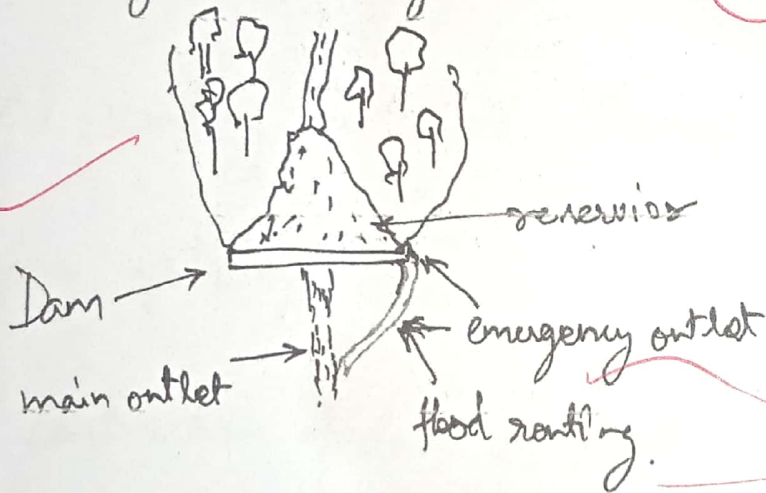 reservior
Dam
emergency outlet
main outlet
flood routing.